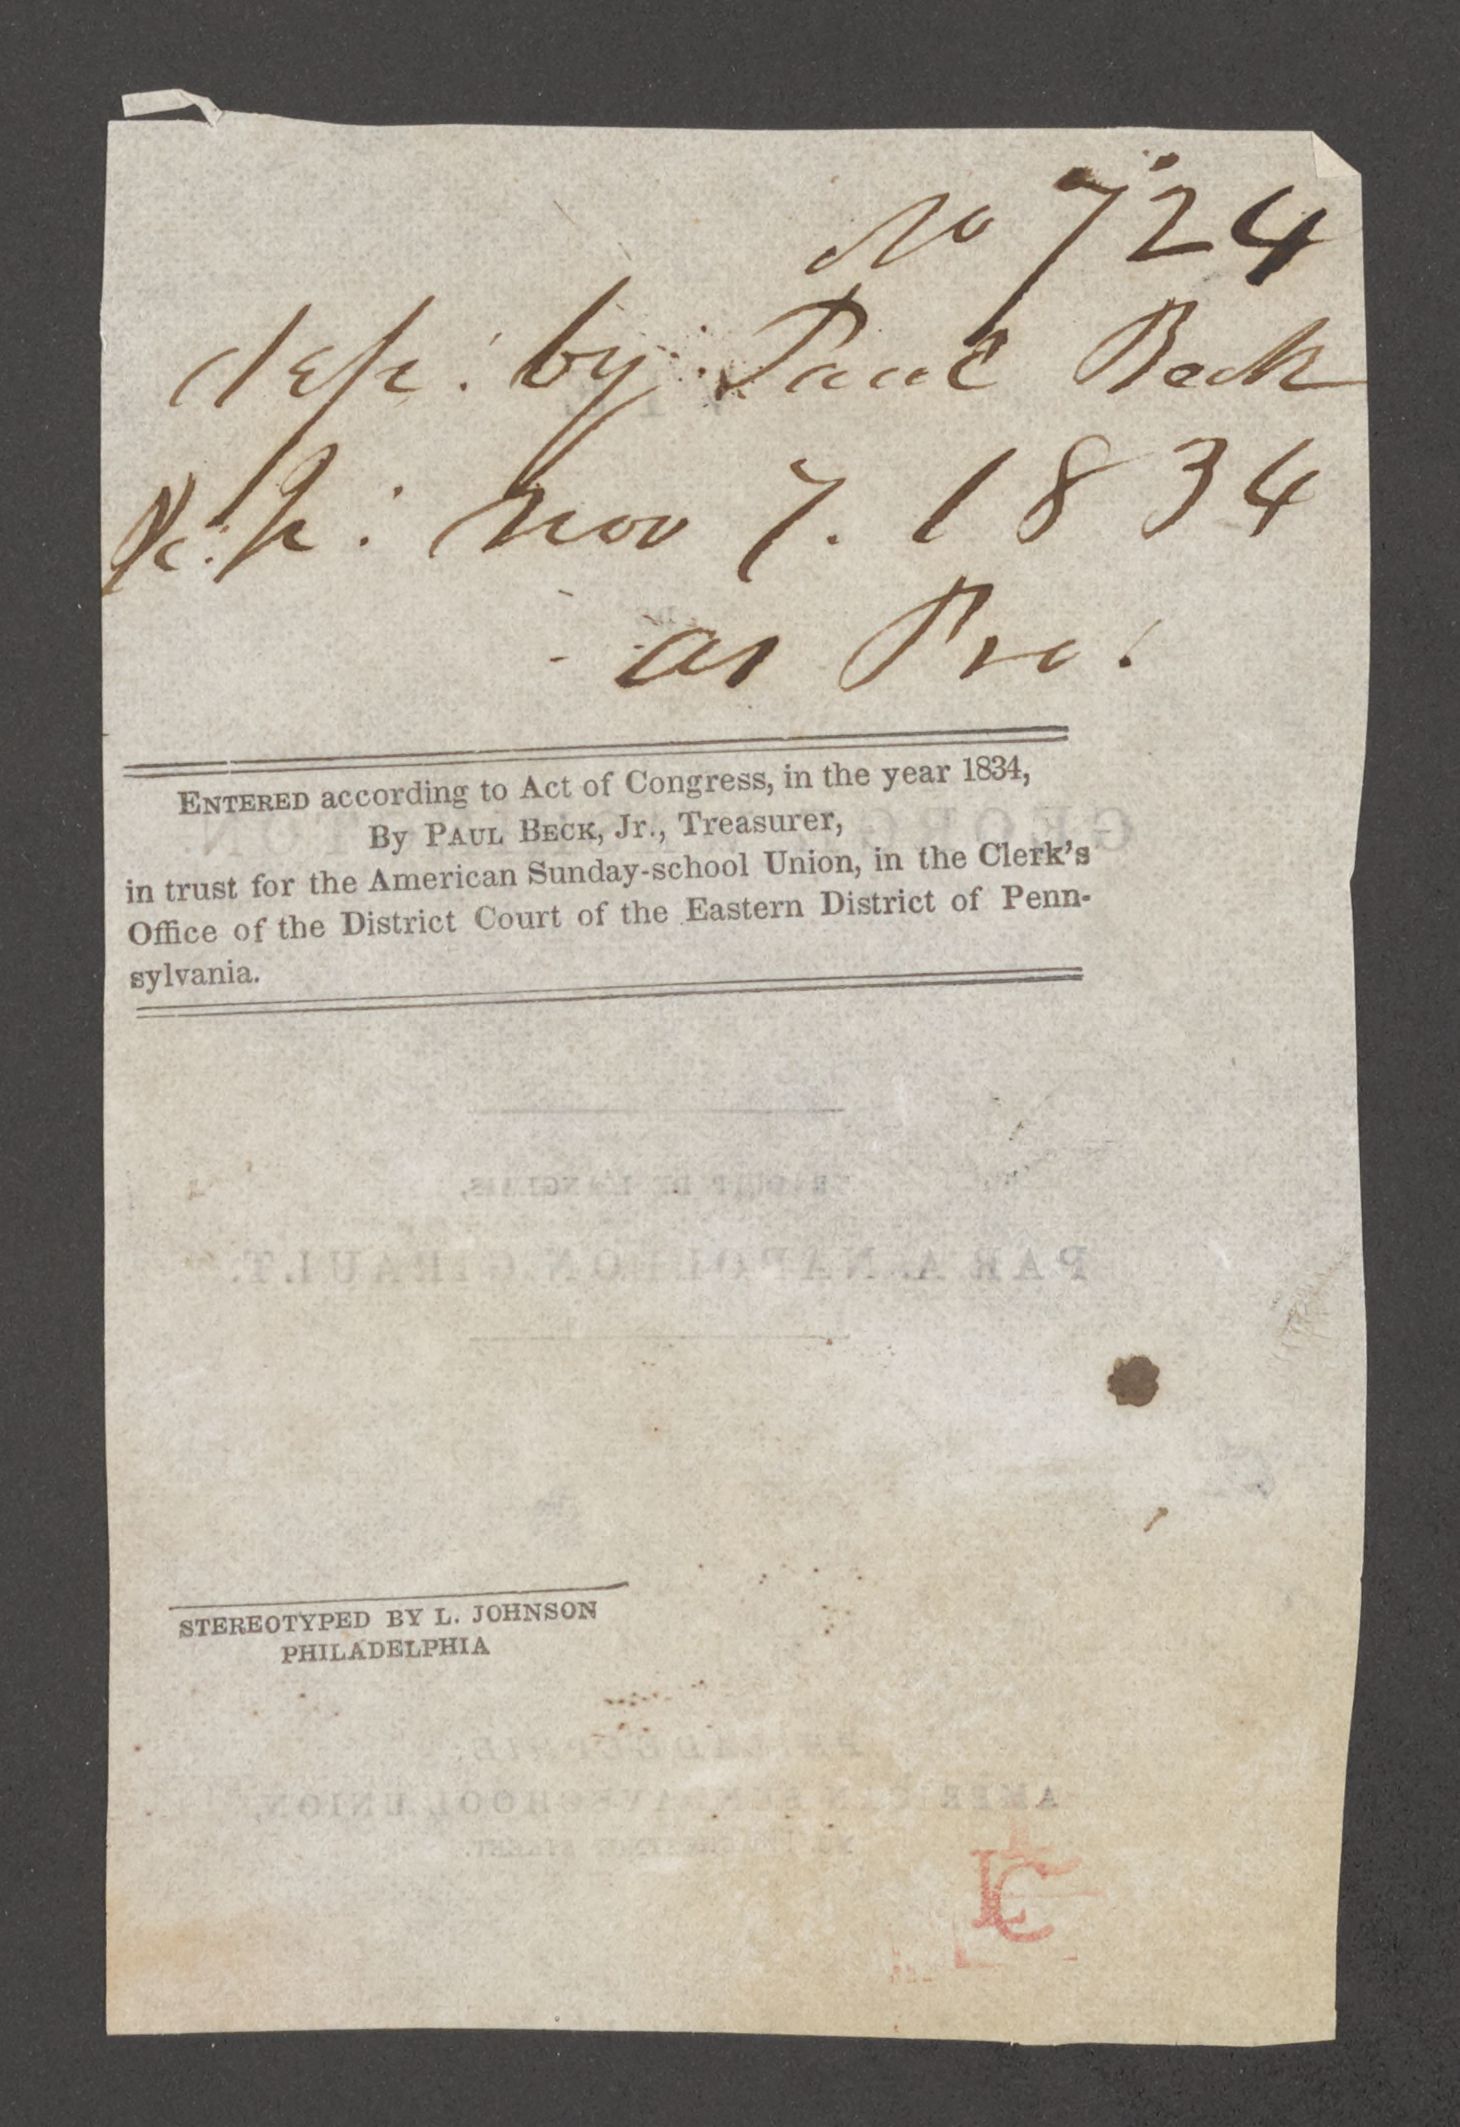 No 724
dep: by Paul Beck
Nov 7. 1834
as Pro:
ENTERED according to Act of Congress, in the year 1834,
By PAUL BECK, Jr., Treasurer,
in trust for the American Sunday-school Union, in the Clerk's
Office of the District Court of the Eastern District of Penn-
sylvania.
GEORGE
PAR A. NAPOLEON GIRAULT.
STEREOTYPED BY L. JOHNSON
PHILADELPHIA
PHILADELPHIE.
AMERICAN SUNDAY SCHOOL UNION,
LC